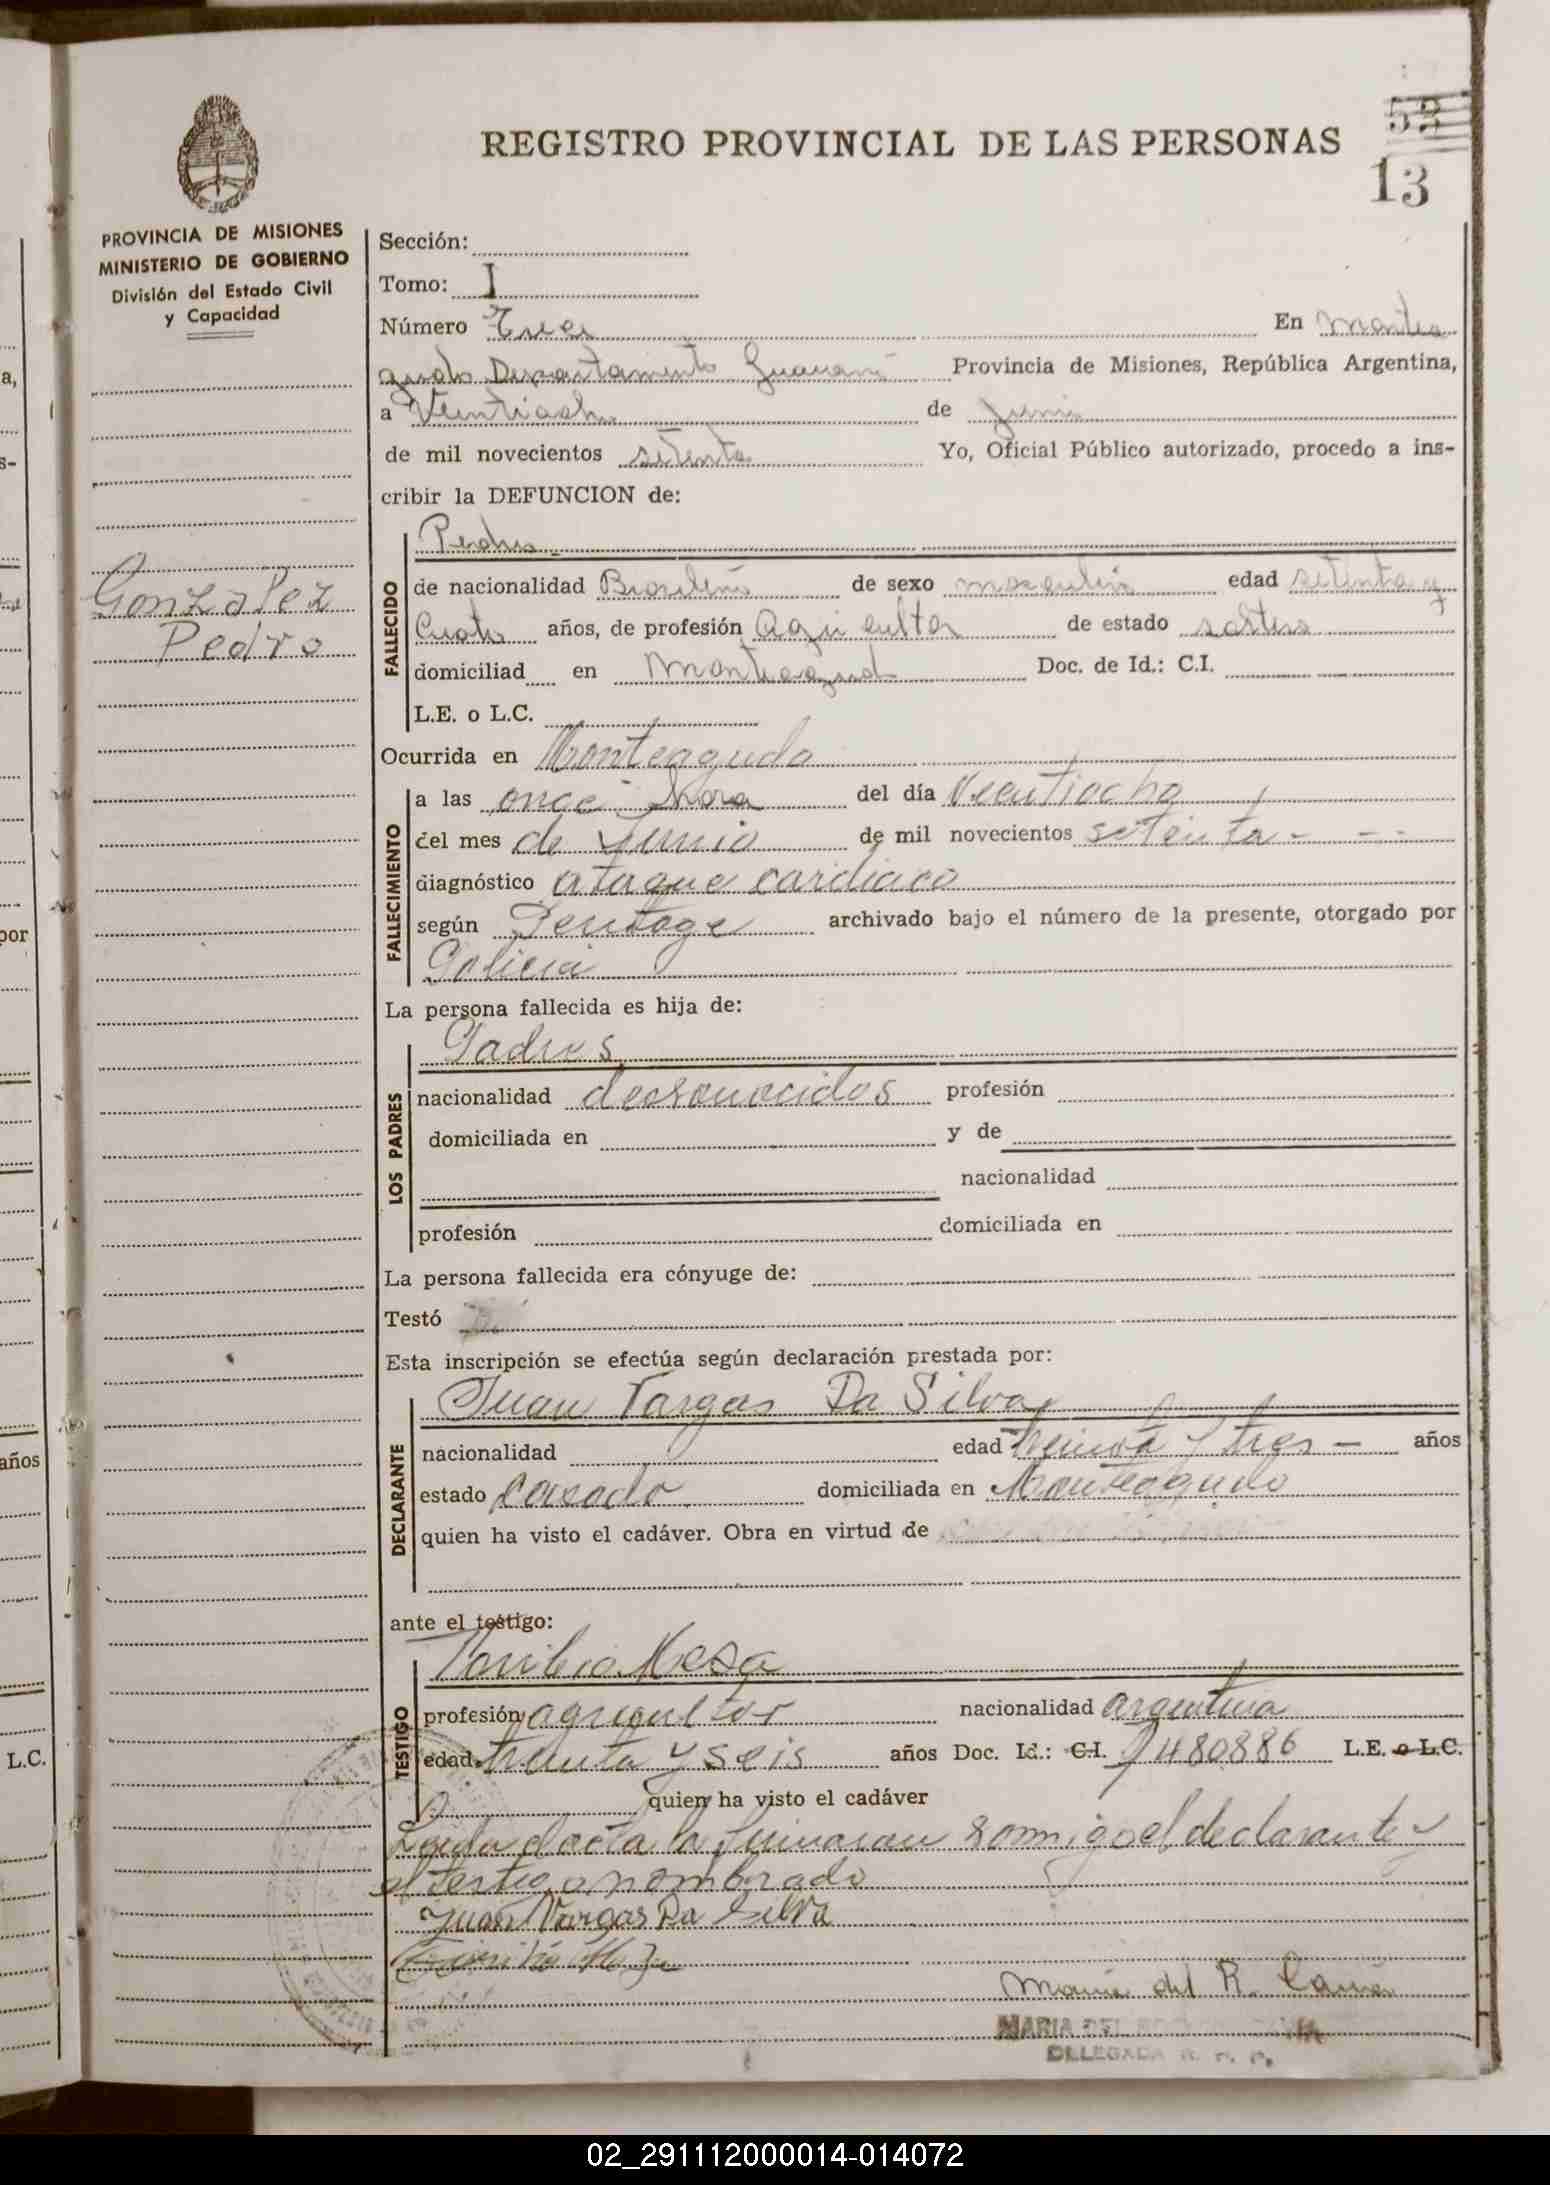 53
13
REGISTRO PROVINCIAL DE LAS PERSONAS
PROVINCIA DE MISIONES
MINISTERIO DE GOBIERNO
División del Estado Civil
y Capacidad
Gonzalez
Pedro
Sección:
Tomo: I
Número Tres En Montea
gudo Departamento Guaraní Provincia de Misiones, República Argentina,
a Veintiocho de Junio
de mil novecientos setenta Yo, Oficial Público autorizado, procedo a ins-
cribir la DEFUNCION de:
FALLECIDO
Pedro
de nacionalidad Brasileño de sexo masculino edad setenta y
Cuatro años, de profesión Agricultor de estado soltero
domiciliad en Monteagudo Doc. de Id.: C.I.
L.E. o L.C.
Ocurrida en Monteagudo
FALLECIMIENTO
a las once hora del día Veentiocho
del mes de Junio de mil novecientos setenta - - -
diagnóstico ataque cardiaco
según archivado bajo el número de la presente, otorgado por
La persona fallecida es hija de:
LOS PADRES
Padres
nacionalidad desconocidos profesión
domiciliada en y de
nacionalidad
profesión domiciliada en
La persona fallecida era cónyuge de:
Testó
Esta inscripción se efectúa según declaración prestada por:
DECLARANTE
Juan Vargas Da Silva
nacionalidad edad y tres - años
estado Casado domiciliada en Monteagudo
quien ha visto el cadáver. Obra en virtud de
ante el testigo:
TESTIGO
Toribio Mesa
profesión agricultor nacionalidad argentina
edad treinta y seis años Doc. Id.: C.I. 7480886 L.E. o L.C.
quien ha visto el cadáver
Leida el acta la firmaran conmigo el declarante y
el testigo nombrado
Juan Vargas Da Silva
María del R.
MARIA DEL
DELEGADA R. P. P.
02_291112000014-014072